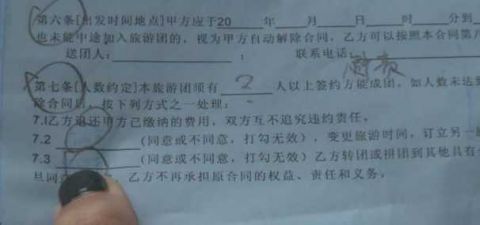 第六条[出发时间地点]甲方应于20 年 月 日 时 分到
也未能中途加入旅游团的，视为甲方自动解除合同，乙方可以按照本合同第八
送团人： ； 联系电话：
第七条[人数约定]本旅游团须有 2 人以上签约方能成团，如人数未达到
除合同后，按下列方式之一处理：
7.1乙方退还甲方已缴纳的费用，双方互不追究违约责任。
7.2 (同意或不同意，打勾无效)，变更旅游时间，订立另一
7.3 (同意或不同意，打勾无效)乙方转团或拼团到其他具有
旦同 乙方不再承担原合同的权益、责任和义务。